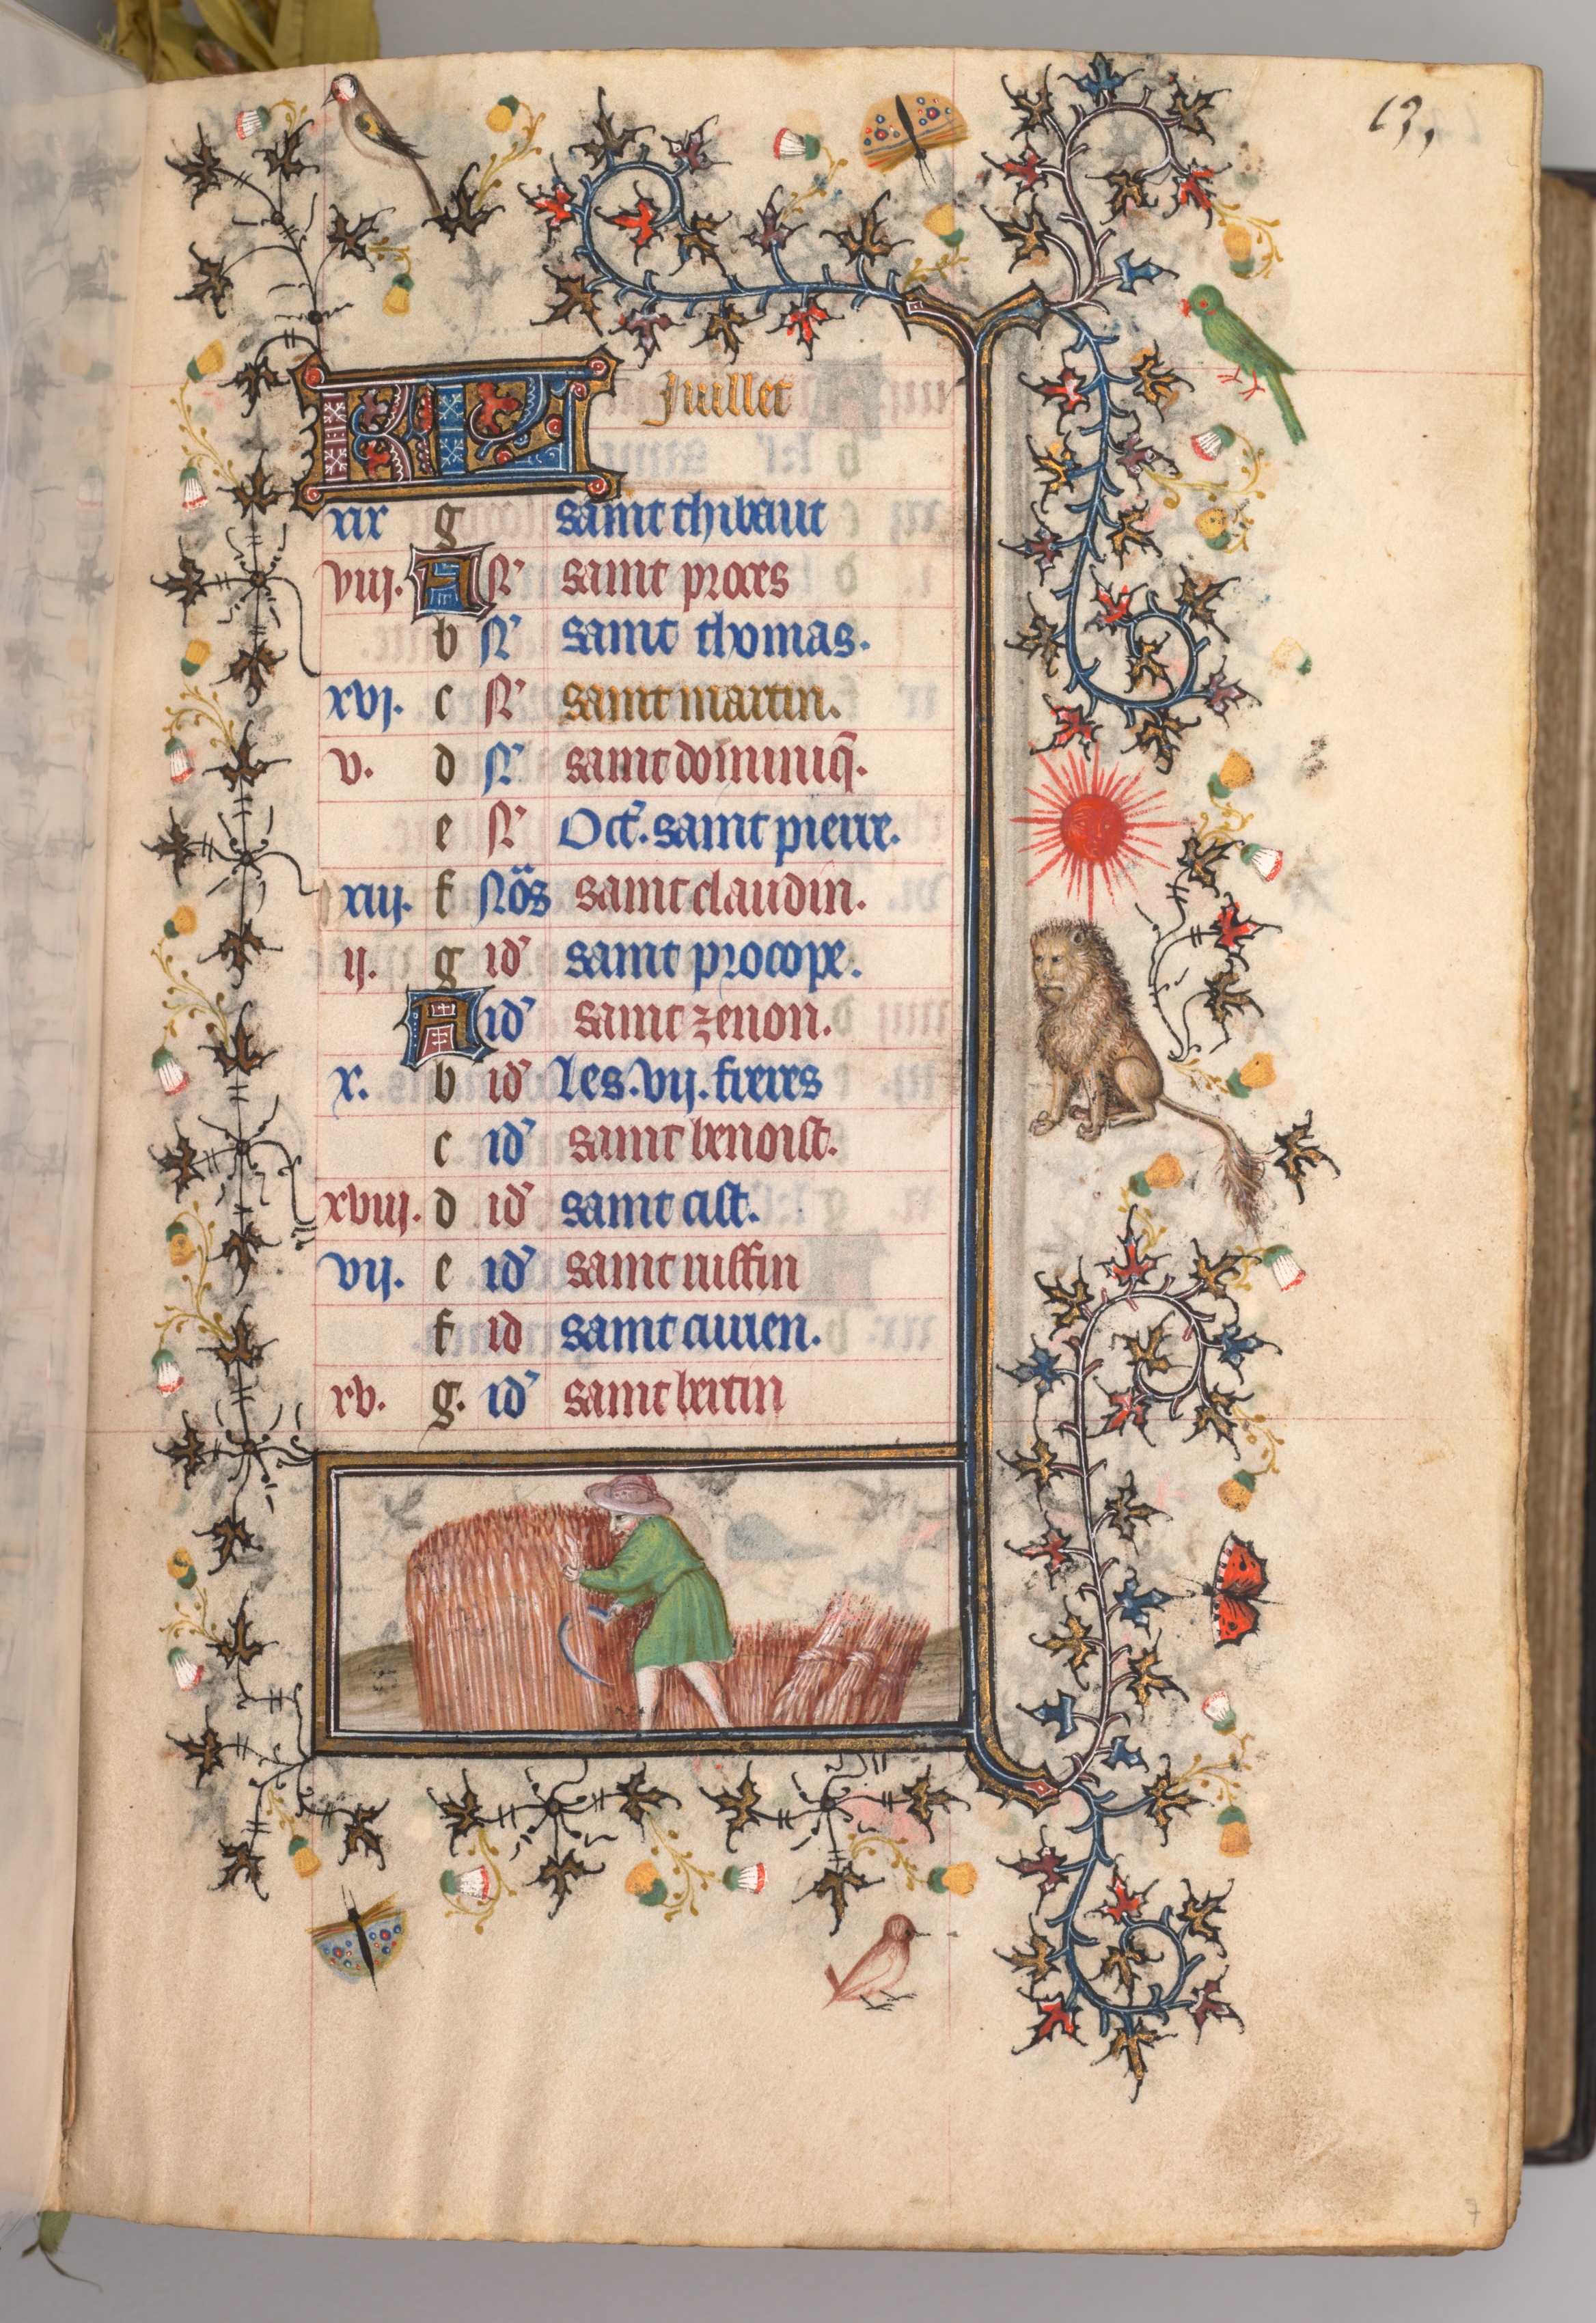 13,
KL Juillet
xix g saint thibaut
viij. A N' saint proces
b N' saint thomas.
xvj. c N' saint martin.
v. d N' saint dominiq̄.
e N' Oct'. saint pierre.
xiij. f Nōs saint claudin.
ij. g id' saint procope.
A id' saint zenon.
x. b id' les .vij. freres
c id' saint benoist.
xviij. d id' saint cist.
vij. e id' saint ruffin
f id saint auien.
xv. g. id' saint bertin
7